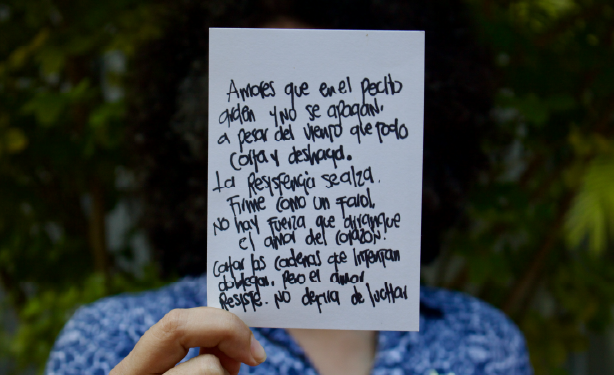 Amores que en el pecho
arden y no se apagan.
a pesar del viento que todo
corta y deshaga.
La Resistencia se alza.
Firme como un farol.
No hay fuerza que arranque
el amor del corazón.
cortar las cadenas que intentan
doblegar. Pero el amor
Resiste. No dejra de luchar